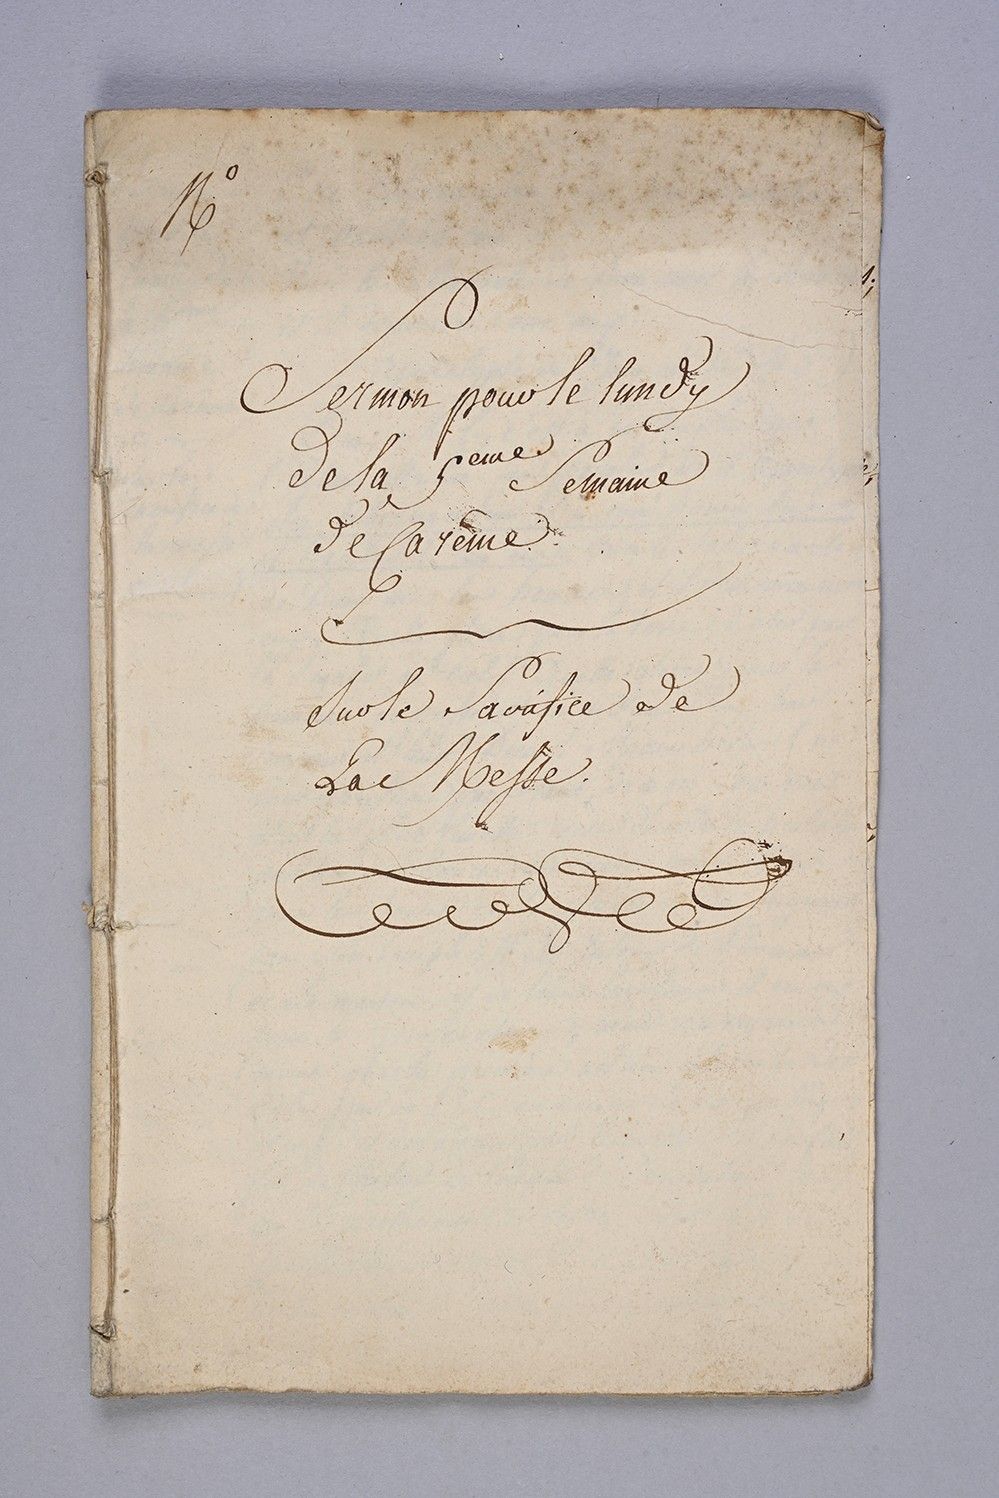 N°
Sermon pour le lundy
de la 5eme Semaine
de Carême.
Sur le Sacrifice de
La Messe.